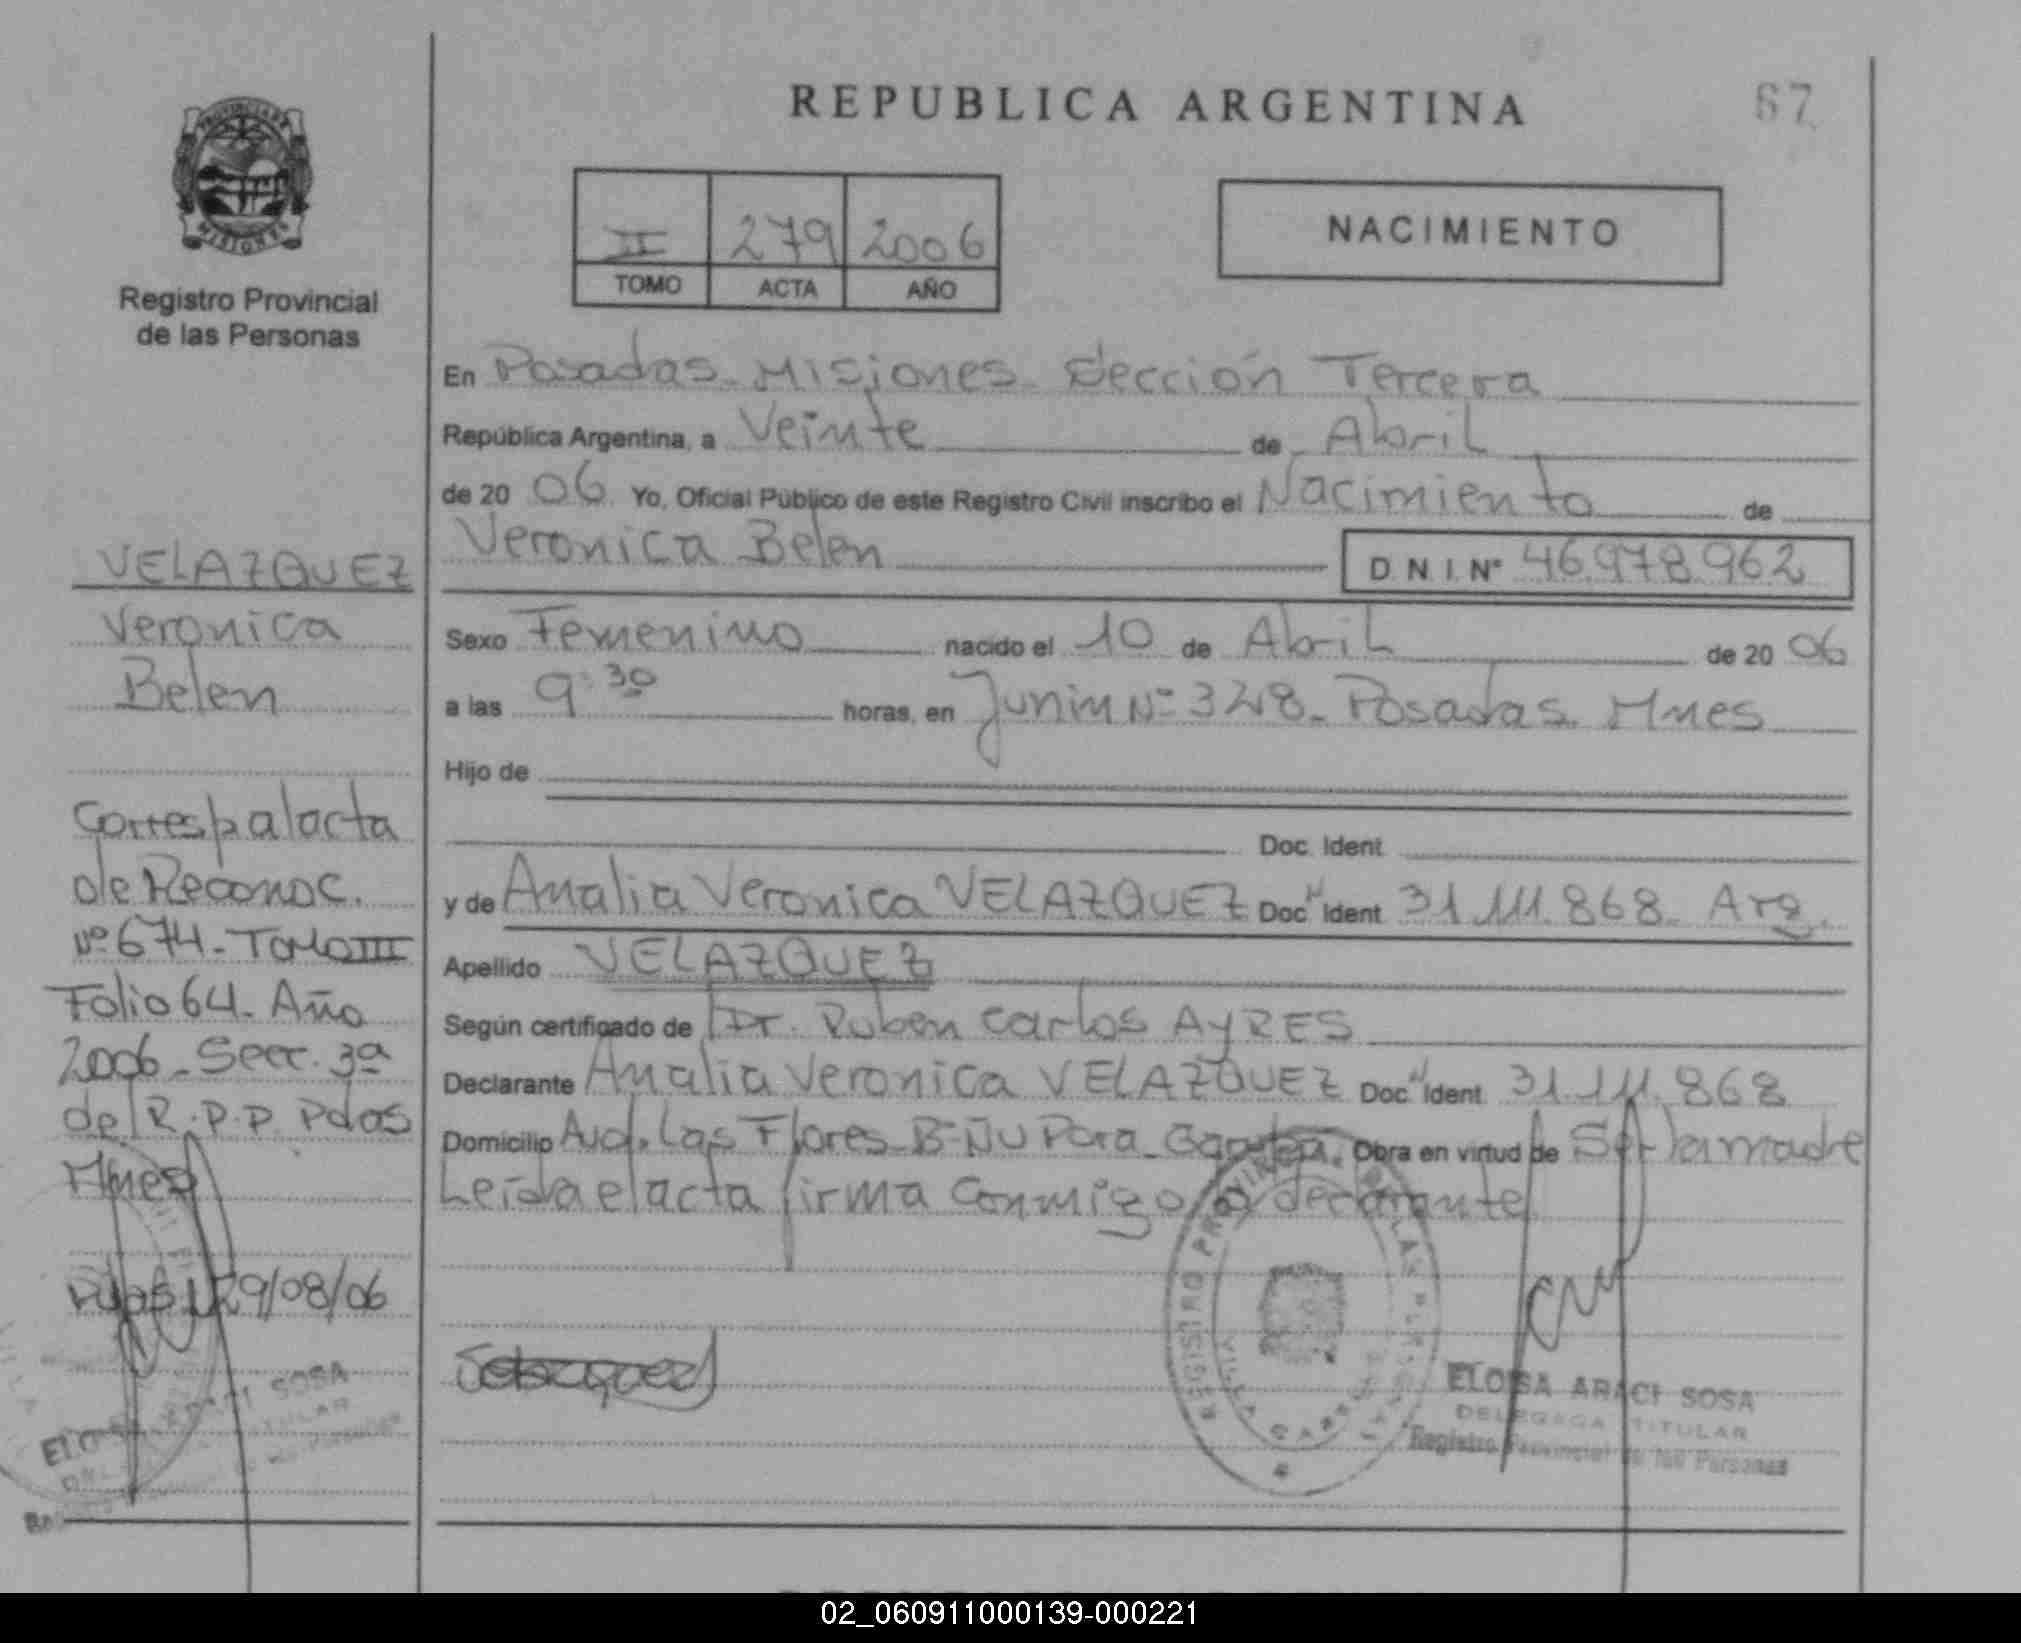 REPUBLICA ARGENTINA
67
PROVINCIA DE
MISIONES
Registro Provincial
de las Personas
II 279 2006
TOMO ACTA AÑO
NACIMIENTO
En Posadas - Misiones - Sección Tercera
República Argentina, a Veinte de Abril
de 20 06 Yo, Oficial Público de este Registro Civil inscribo el Nacimiento de
Veronica Belen D.N.I. Nº 46.978.962
Sexo Femenino nacido el 10 de Abril de 20 06
a las 9:30 horas, en Junin Nº 328 - Posadas - Mnes
Hijo de
Doc. Ident.
y de Analia Veronica VELAZQUEZ Doc. Ident. 31.111.868 - Arg.
Apellido VELAZQUEZ
Según certificado de Dr. Ruben Carlos AYRES
Declarante Analia Veronica VELAZQUEZ Doc. Ident. 31.111.868
Domicilio Avd. Las Flores - Bº Ñu Pora - Obra en virtud de Ser la madre
Leida el acta firma conmigo declarante
VELAZQUEZ
Veronica
Belen
Corresp al acta
de Reconoc.
Nº 674 - Tomo III
Folio 64 - Año
2006 - Secc. 3ª
del R.P.P. Pdas
Mnes
Pdas, 29/08/06
REGISTRO PROVINCIAL DE LAS PERSONAS
ELOISA ARACI SOSA
DELEGADA TITULAR
Registro Provincial de las Personas
ELOISA ARACI SOSA
TITULAR
02_060911000139-000221